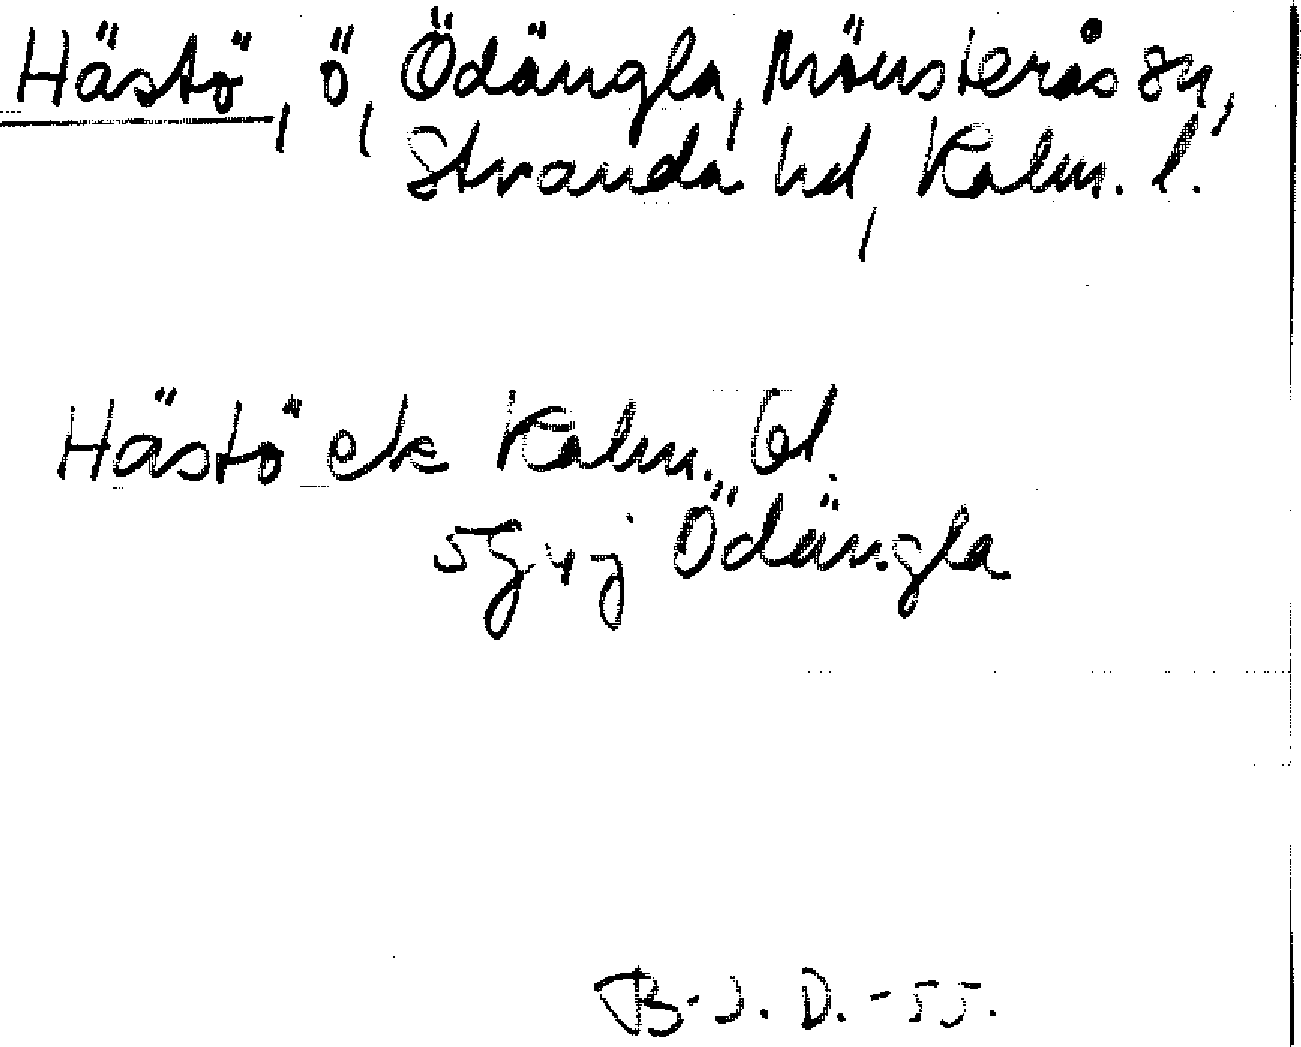 Hästö, ö, Ödängla, Mönsterås sn,
Stranda hd, Kalm. l.
Hästö ek Kalm. bl.
5G4j Ödängla
B-J. D. -55.